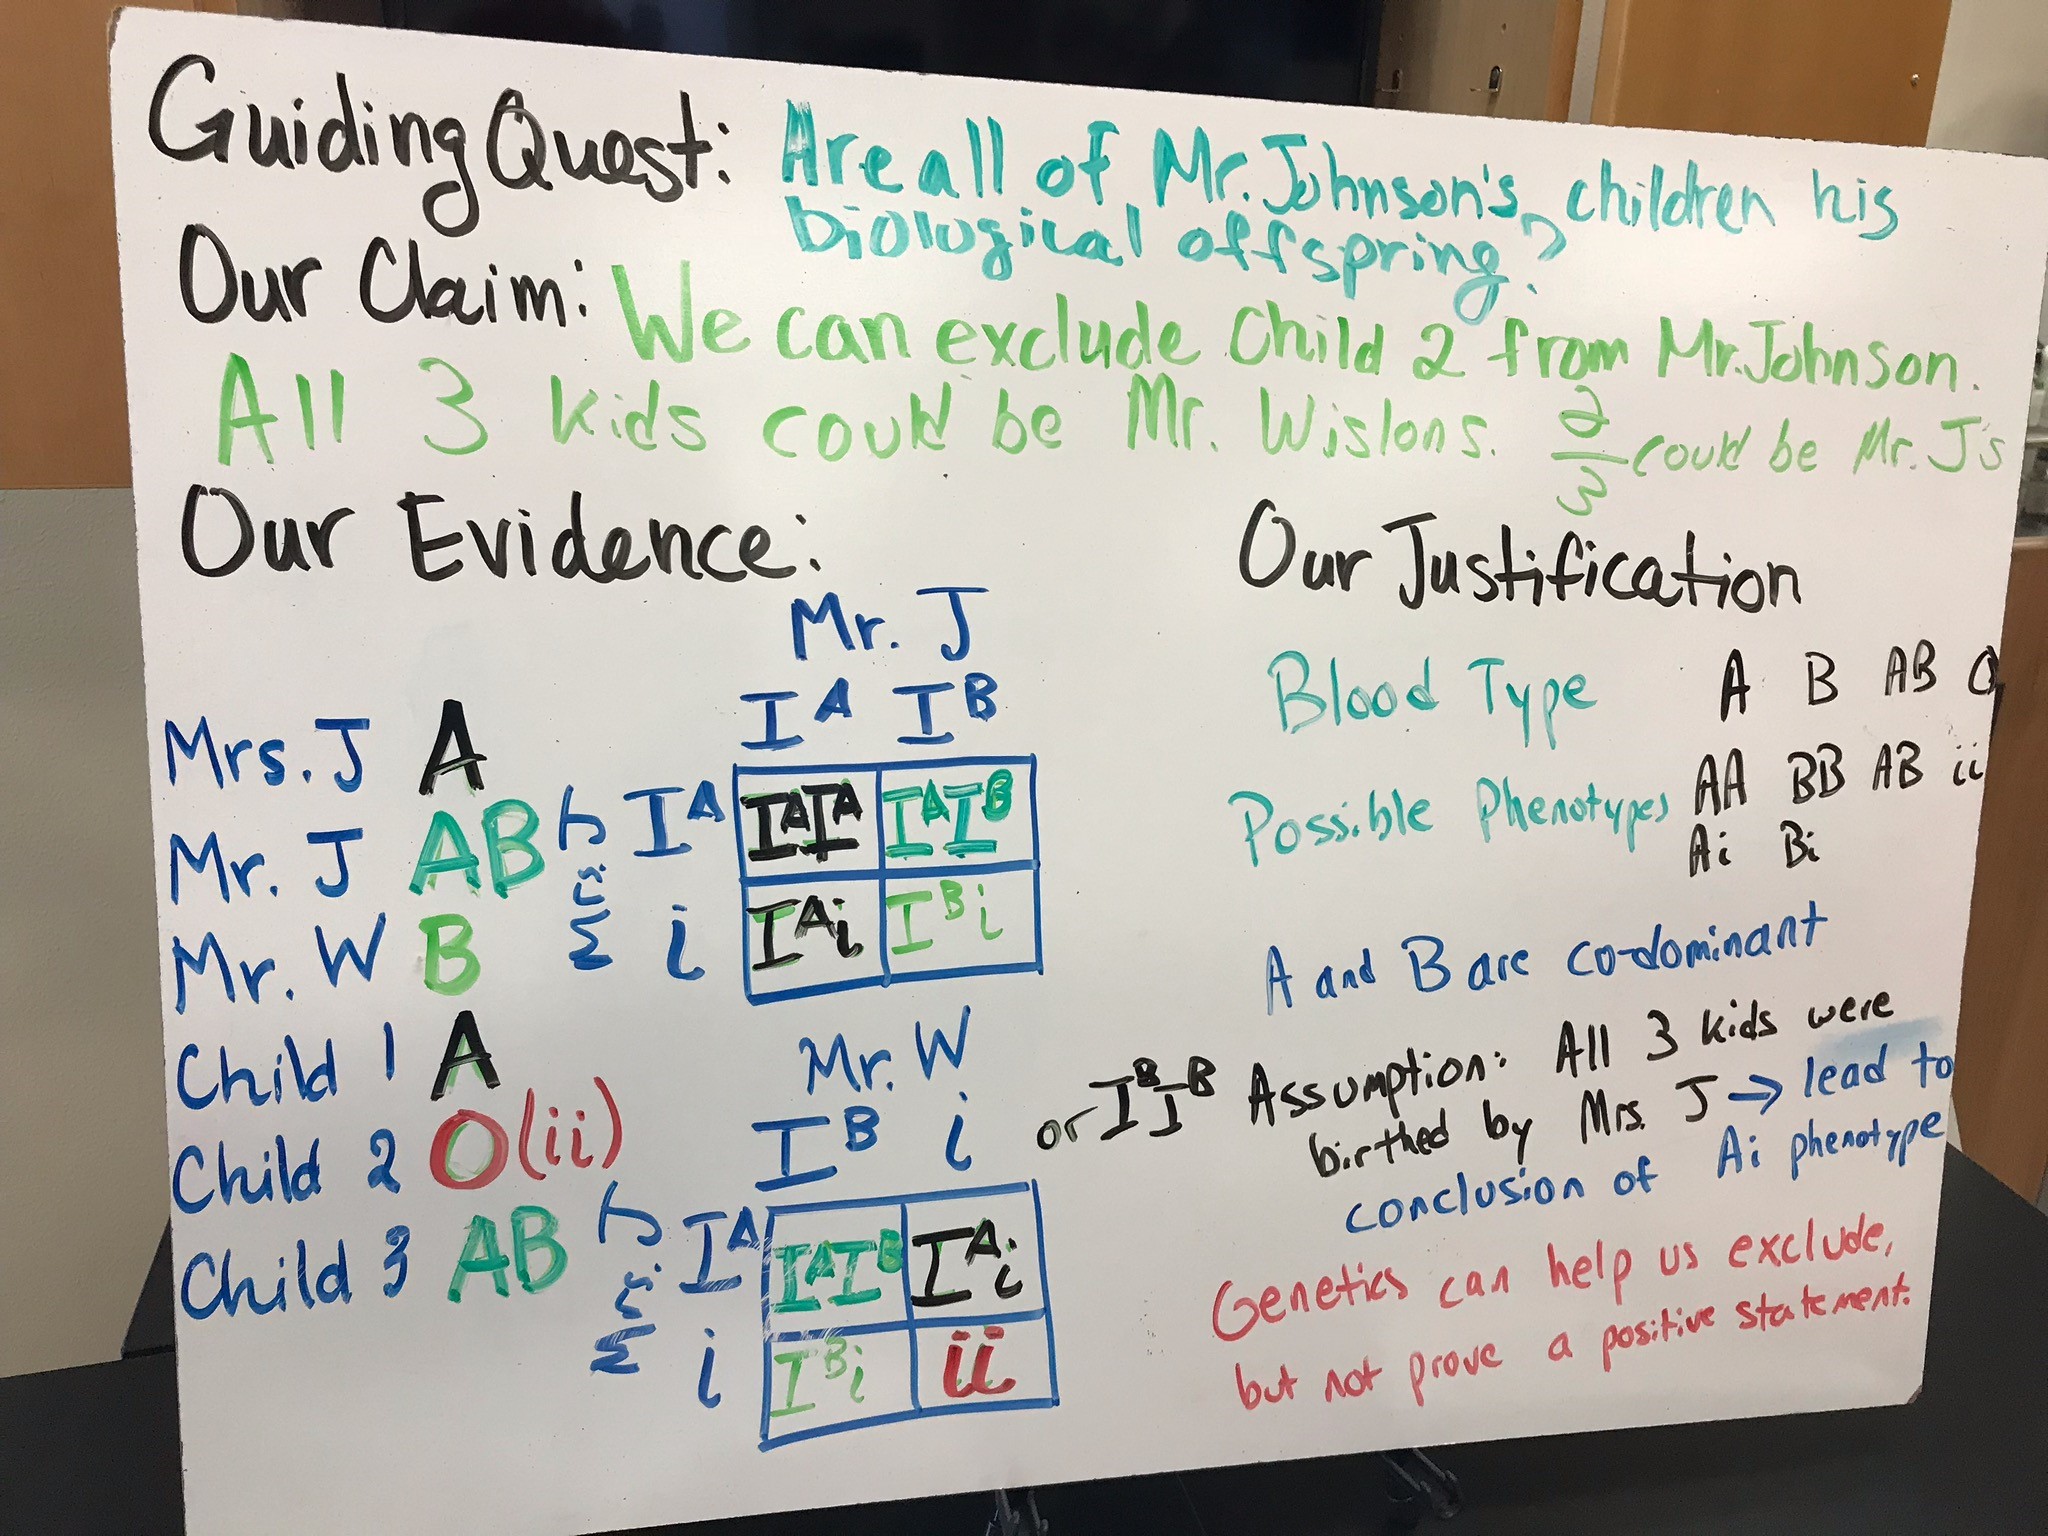 Guiding Quest: Are all of Mr. Johnson's children his
biological offspring?
Our Claim: We can exclude Child 2 from Mr. Johnson.
All 3 kids could be Mr. Wislons. 2/3 could be Mr. J's
Our Evidence:
Mrs. J A
Mr. J AB
Mr. W B
Child 1 A
Child 2 O(ii)
Child 3 AB
Mr. J
I^A I^B
Mrs. J
I^A I^AI^A I^AI^B
i I^Ai I^Bi
Mr. W
I^B i or I^BI^B
Mrs. J
I^A I^AI^B I^Ai
i I^Bi ii
Our Justification
Blood Type A B AB O
Possible Phenotypes AA BB AB ii
Ai Bi
A and B are co-dominant
Assumption: All 3 kids were
birthed by Mrs. J → lead to
conclusion of Ai phenotype
Genetics can help us exclude,
but not prove a positive statement.